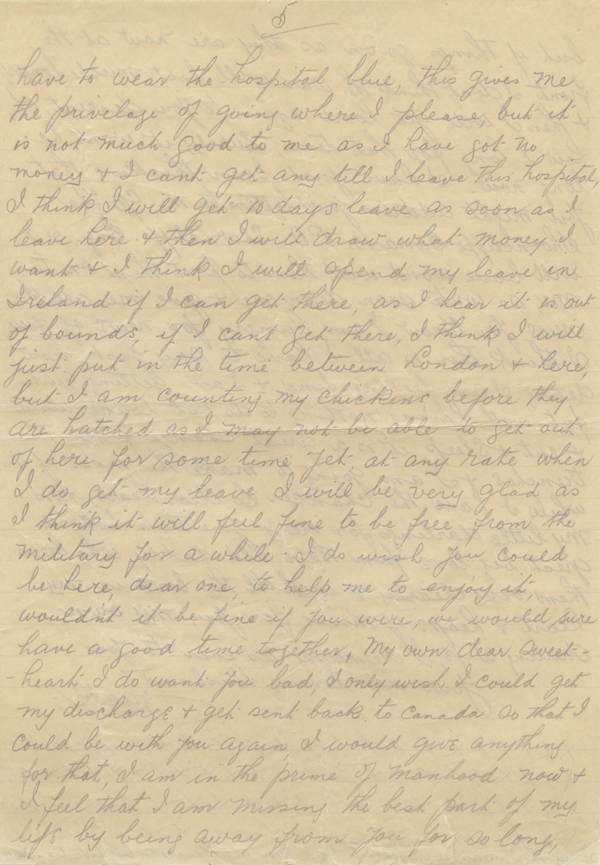 5
have to wear the hospital blue, this gives me
the privelage of going where I please, but it
is not much good to me as I have got no
money + I cant get any till I leave this hospital,
I think I will get 10 days leave as soon as I
leave here + then I will draw what money I
want + I think I will spend my leave in
Ireland if I can get there, as I hear it is out
of bounds, if I cant get there, I think I will
just put in the time between London + here,
but I am counting my chickens before they
are hatched as I may not be able to get out
of here for some time yet, at any rate when
I do get my leave I will be very glad as
I think it will feel fine to be free from the
military for a while. I do wish you could
be here, dear one, to help me to enjoy it,
wouldnt it be fine if you were, we would sure
have a good time together, My own dear sweet-
-heart I do want you bad, I only wish I could get
my discharge + get sent back to Canada so that I
could be with you again I would give anything
for that, I am in the prime of manhood now +
I feel that I am missing the best part of my
life by being away from you for so long,